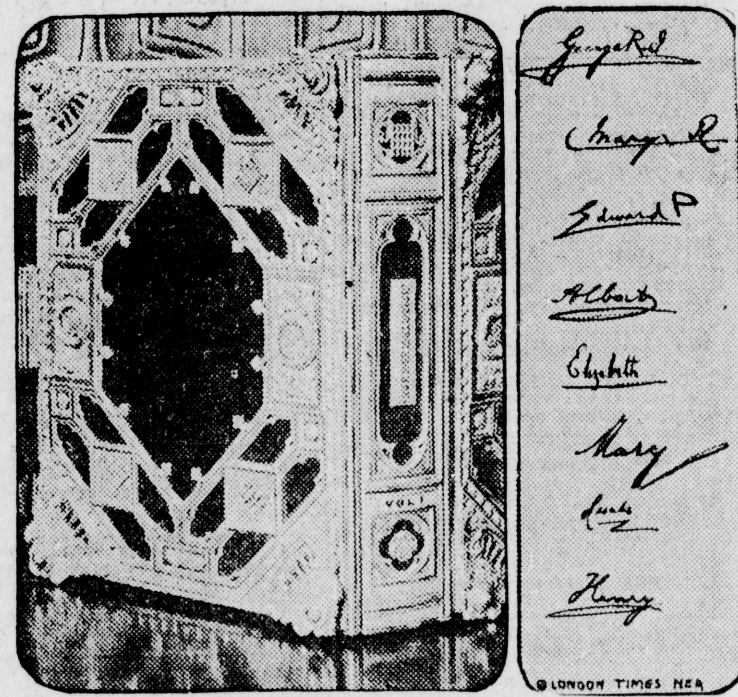 VOL I
George R.I
Mary R
Edward P
Albert
Elizabeth
Mary
Henry
© LONDON TIMES NEA